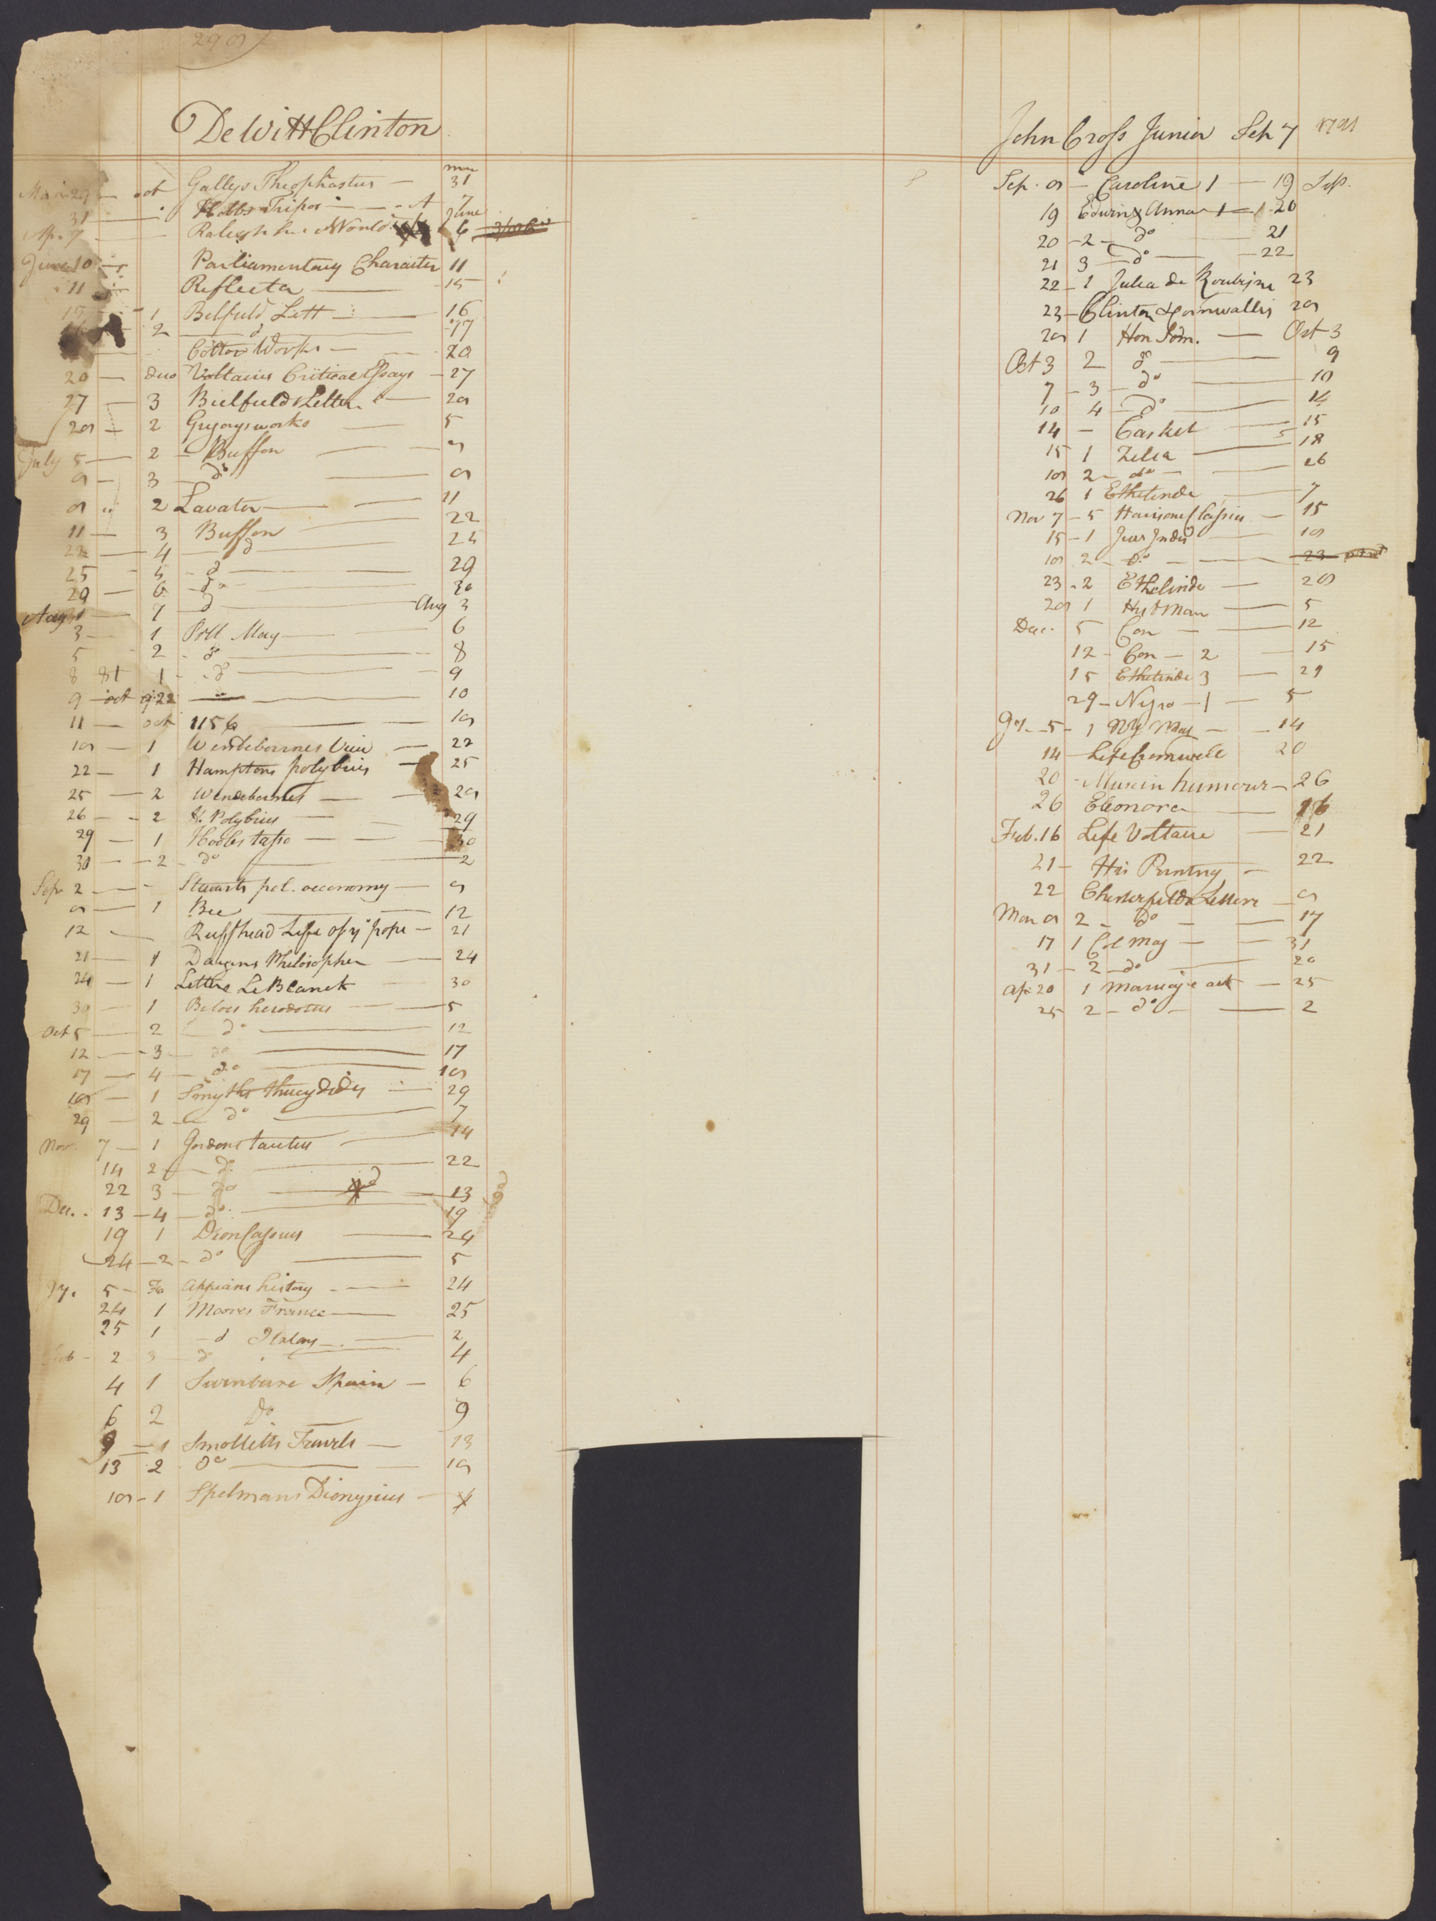 290
DeWitt Clinton
Mar 29 — oct Gallys Theophastus — mar 31
31 — Hobbs Tripos — A 7
Ap. 7 — Raleigh his World June 6
June 10 — Parliamentary Character 11
11 — Reflecta — 15
1 Belfield Lett — 16
2 — d — 17
Cotton Works — 20
20 — duo Voltaires Critical Essays — 27
27 — 3 Bielfields Letter — 28
28 — 2 Gregorys works — 5
July 5 — 2 — Buffon —
8 — 3 — do — 8
8 2 Lavater — 11
11 — 3 Buffon — 22
22 — 4 — d — 25
25 — 5 — d — 29
29 — 6 — do — 30
Aug 1 — 7 — d — Aug 3
3 — 1 Poll. Mag — 6
5 — 2 — do — 8
8 8t 1 — do — 9
9 — oct 922 — 10
11 — oct 1156 — 18
18 — 1 Wendebournes View — 22
22 — 1 Hamptons polybius — 25
25 — 2 Wendebournes — 28
26 — 2 H. Polybius — 29
29 — 1 Hooles tasso — 30
30 — 2 — do — 2
Sep 2 — Stewarts pol. oeconomy — 8
8 — 1 Bee — 12
12 — Ruffhead Life of ye pope — 21
21 — 1 Dargens Philosopher — 24
24 — 1 Letters LeBlanck — 30
30 — 1 Beloes herodotus — 5
Oct 5 — 2 do — 12
12 — 3 — do — 17
17 — 4 — do — 18
18 — 1 Smyths thucydides — 29
29 — 2 — do — 7
Nov 7 — 1 Gordons tacitus — 14
14 2 — do — 22
22 3 — do — 13
Dec. 13 — 4 — do — 19
19 1 Dion Cassius — 24
24 — 2 — do — 5
Jy. 5 — fo Appians history — 24
24 1 Moores France — 25
25 1 — d Italy — 2
Feb — 2 d — 4
4 1 Swinburne Spain — 6
6 2 Do 9
9 — 1 Smolletts Travels — 13
13 2 do — 18
18 — 1 Spelmans Dionysius —
John Cross Junior Sep 7 1791
Sep. 8 — Caroline 1 — 19 Sep.
19 Edwin & Anna 1 — 20
20 — 2 — do — 21
21 3 — do — 22
22 — 1 Julia de Roubigne 23
23 — Clinton & Cornwallis 28
28 1 Hon Ddm. — Oct 3
Oct 3 2 do — 9
7 — 3 — do — 10
10 4 — do — 14
14 — Casket — 15
15 1 Zelia — 18
18 2 — do — 26
26 1 Ethelinde — 7
Nov 7 — 5 Harrisons Classics — 15
15 — 1 — 18
18 2 — do — 23
23 — 2 Ethelinde — 28
28 1 Hist Man — 5
Dec. 5 Con — 12
12 — Con — 2 — 15
15 Ethelinde 3 — 29
29 — Negro — 1 — 5
Jy. — 5 — 1 NY Mag — 14
14 — Life Cromwell 20
20 — Man in humour — 26
26 Eleonora — 16
Feb. 16 Life Voltaire — 21
21 — Her Printing — 22
22 Chesterfields Letters — 8
Mar 8 2 — do — 17
17 1 Col Mag — 31
31 — 2 — do — 20
Ap. 20 1 Marriage act — 25
25 2 — do — 2